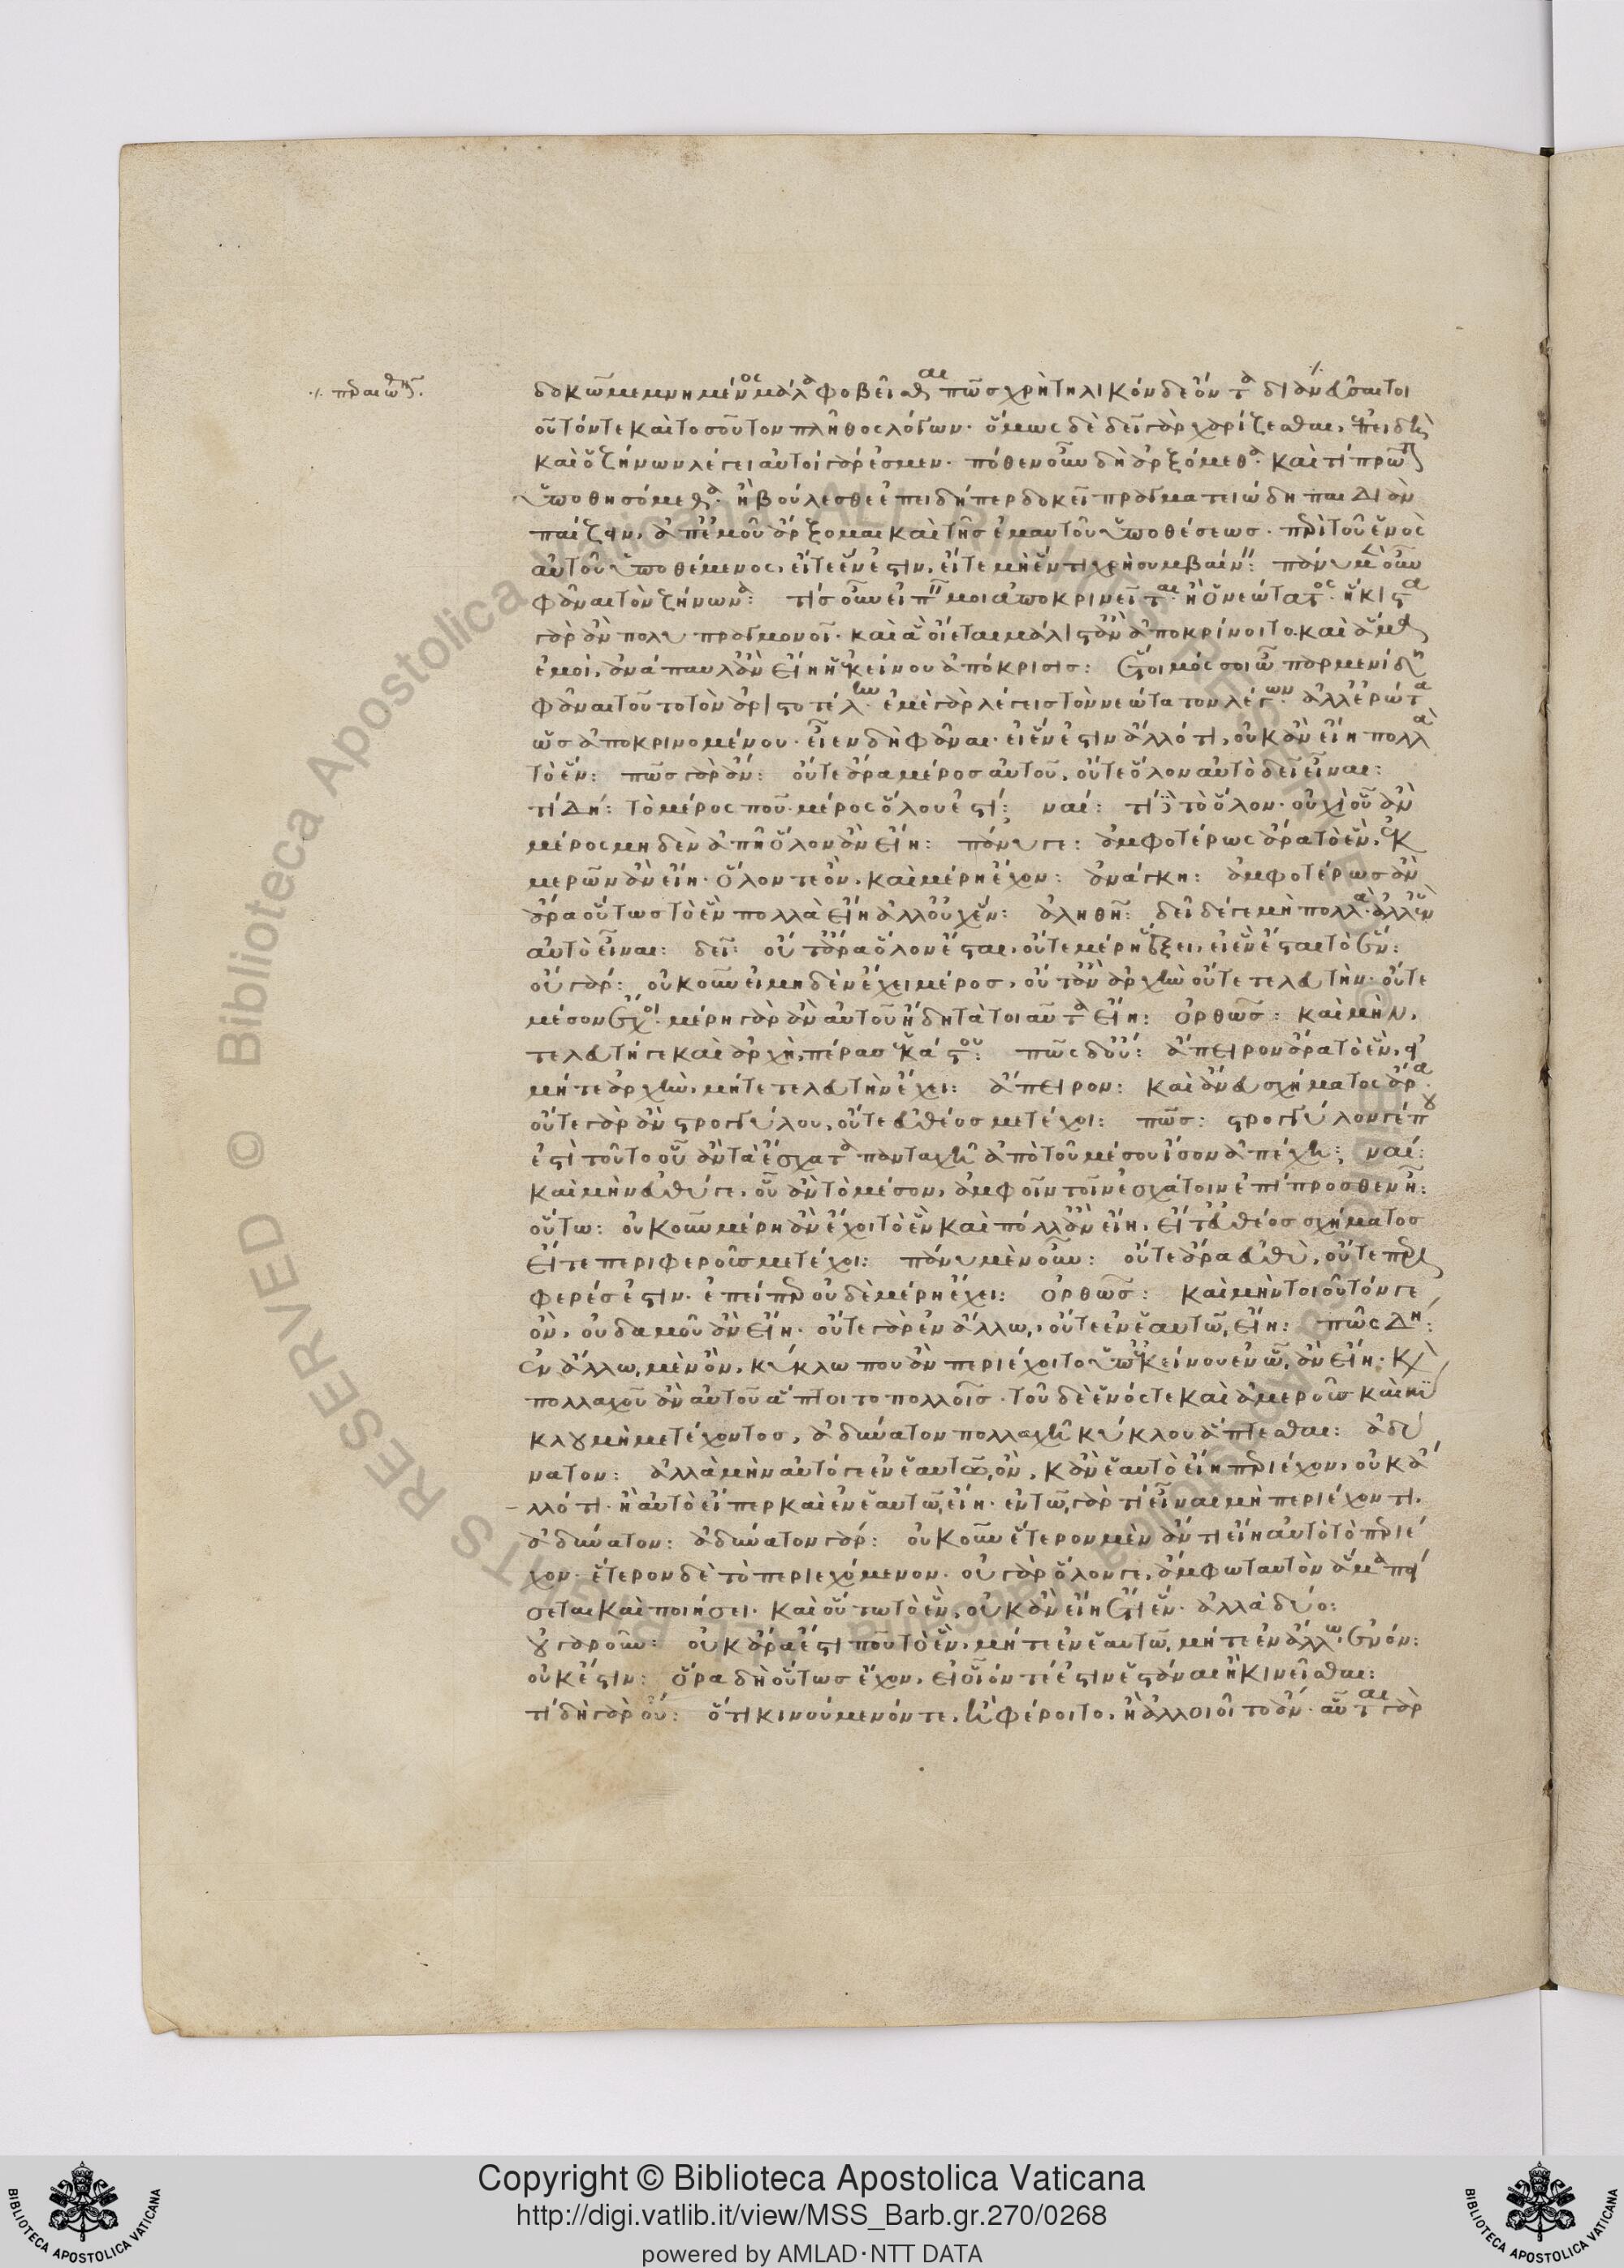 ·/. περαιωθῆναι.
δοκῶ μεμνημένος μάλα φοβεῖσθαι πῶς χρὴ τηλικόνδε ὄντα διανεῦσαι τοι
οῦτόν τε καὶ τοσοῦτον πλῆθος λόγων· ὅμως δὲ δεῖ γὰρ χαρίζεσθαι, ἐπειδὴ
καὶ ὃ ζήνων λέγει αὐτοί γάρ ἐσμεν· πόθεν οὖν δὴ ἀρξόμεθα· καὶ τί πρῶτον
ὑποθησόμεθα· ἢ βούλεσθε ἐπειδήπερ δοκεῖ πραγματειώδη παιδιὰν
παίζειν, ἀπ' ἐμοῦ ἄρξομαι καὶ τῆς ἐμαυτοῦ ὑποθέσεως· περὶ τοῦ ἑνὸς
αὐτοῦ ὑποθέμενος, εἴτε ἕν ἐστιν, εἴτε μὴ ἓν τί χρὴ συμβαίνειν: πάνυ μὲν οὖν
φάναι τὸν ζήνωνα: τίς οὖν εἰπεῖν μοι ἀποκρινεῖται· ἢ ὁ νεώτατος· ἥκιστα
γὰρ ἂν πολυπραγμονοῖ· καὶ ἃ οἴεται μάλιστ' ἂν ἀποκρίνοιτο. καὶ ἅμα
ἐμοὶ, ἀνάπαυλ' ἂν εἴη ἡ ἐκείνου ἀπόκρισις: ἕτοιμός σοι ὦ παρμενίδη
φάναι τοῦτο τὸν ἀριστοτέλην· ἐμὲ γὰρ λέγεις τὸν νεώτατον λέγων· ἀλλ' ἐρώτα
ὡς ἀποκρινομένου· εἶεν δὴ φάναι· εἰ ἕν ἐστιν ἄλλό τι, οὐκ ἂν εἴη πολλὰ
τὸ ἕν: πῶς γὰρ ἄν: οὔτε ἄρα μέρος αὐτοῦ, οὔτε ὅλον αὐτὸ δεῖ εἶναι:
τί δή: τὸ μέρος που μέρος ὅλου ἐστί: ναί: τί δὲ τὸ ὅλον· οὐχὶ οὗ ἂν
μέρος μηδὲν ἀπῇ ὅλον ἂν εἴη: πάνυ γε: ἀμφοτέρως ἄρα τὸ ἓν, ἐκ
μερῶν ἂν εἴη· ὅλον τε ὂν, καὶ μέρη ἔχον: ἀνάγκη: ἀμφοτέρως ἂν
ἄρα οὕτως τὸ ἓν πολλὰ εἴη ἀλλ' οὐχ ἕν: ἀληθῆ: δεῖ δέ γε μὴ πολλὰ· ἀλλ' ἓν
αὐτὸ εἶναι: δεῖ: οὔτ' ἄρα ὅλον ἔσται, οὔτε μέρη ἕξει, εἰ ἓν ἔσται τὸ ἕν:
οὐ γάρ: οὐκοῦν εἰ μηδὲν ἔχει μέρος, οὔτ' ἂν ἀρχὴν οὔτε τελευτὴν· οὔτε
μέσον ἔχοι· μέρη γὰρ ἂν αὐτοῦ ἤδη τὰ τοιαῦτα εἴη: ὀρθῶς: καὶ μὴν,
τελευτή γε καὶ ἀρχὴ, πέρας ἑκάστου: πῶς δ' οὔ: ἄπειρον ἄρα τὸ ἓν, εἰ
μήτε ἀρχὴν, μήτε τελευτὴν ἔχει: ἄπειρον: καὶ ἄνευ σχήματος ἄρα·
οὔτε γὰρ ἂν στρογγύλου, οὔτε εὐθέος μετέχοι: πῶς: στρογγύλον γέ που
ἐστὶ τοῦτο οὗ ἂν τὰ ἔσχατα πανταχῆ ἀπὸ τοῦ μέσου ἴσον ἀπέχη: ναί:
καὶ μὴν εὐθύ γε, οὗ ἂν τὸ μέσον, ἀμφοῖν τοῖν ἐσχάτοιν ἐπίπροσθεν ᾖ:
οὕτω: οὐκοῦν μέρη ἂν ἔχοι τὸ ἓν καὶ πόλλ' ἂν εἴη, εἴτ' εὐθέος σχήματος
εἴτε περιφεροῦς μετέχοι: πάνυ μὲν οὖν: οὔτε ἄρα εὐθὺ, οὔτε περι
φερές ἐστιν· ἐπείπερ οὐδὲ μέρη ἔχει: ὀρθῶς: καὶ μὴν τοιοῦτόν γε
ὂν, οὐδαμοῦ ἂν εἴη· οὔτε γὰρ ἐν ἄλλω, οὔτε ἐν ἑαυτῶ, εἴη: πῶς δή:
ἐν ἄλλω, μὲν ὂν, κύκλω που ἂν περιέχοιτο ὑπ' ἐκείνου ἐν ὧ, ἂν εἴη· καὶ
πολλαχοῦ ἂν αὐτοῦ ἅπτοιτο πολλοῖς· τοῦ δὲ ἑνός τε καὶ ἀμεροῦς καὶ κύ
κλου μὴ μετέχοντος, ἀδύνατον πολλαχῆ κύκλου ἅπτεσθαι: ἀδύ
νατον: ἀλλὰ μὴν αὐτό γε ἐν ἑαυτῶ, ὂν, κἂν ἑαυτὸ εἴη περιέχον, οὐκ ἄ
λλό τι· ἢ αὐτὸ εἴπερ καὶ ἐν ἑαυτῶ, εἴη· ἔν τω, γάρ τί εἶναι μὴ περιέχοντι.
ἀδύνατον: ἀδύνατον γάρ: οὐκοῦν ἕτερον μὲν ἄν τι εἴη αὐτὸ τὸ περιέ
χον· ἕτερον δὲ τὸ περιεχόμενον· οὐ γὰρ ὅλον γε, ἄμφω ταυτὸν ἅμα πεί
σεται καὶ ποιήσει· καὶ οὕτω τὸ ἓν, οὐκ ἂν εἴη ἔτι ἕν· ἀλλὰ δύο:
οὐ γὰρ οὖν: οὐκ ἄρα ἐστί που τὸ ἓν, μήτε ἐν ἑαυτῶ, μήτε ἐν ἄλλω, ἐνόν:
οὐκ ἔστιν: ὅρα δὴ οὕτως ἔχον, εἰ οἷόν τέ ἐστιν ἑστάναι ἢ κινεῖσθαι:
τί δὴ γὰρ οὔ: ὅτι κινούμενόν τε, ἢ φέροιτο, ἢ ἀλλοιοῖτο ἄν· αὗται γὰρ
Copyright © Biblioteca Apostolica Vaticana
http://digi.vatlib.it/view/MSS_Barb.gr.270/0268
powered by AMLAD·NTT DATA
BIBLIOTECA APOSTOLICA VATICANA
BIBLIOTECA APOSTOLICA VATICANA